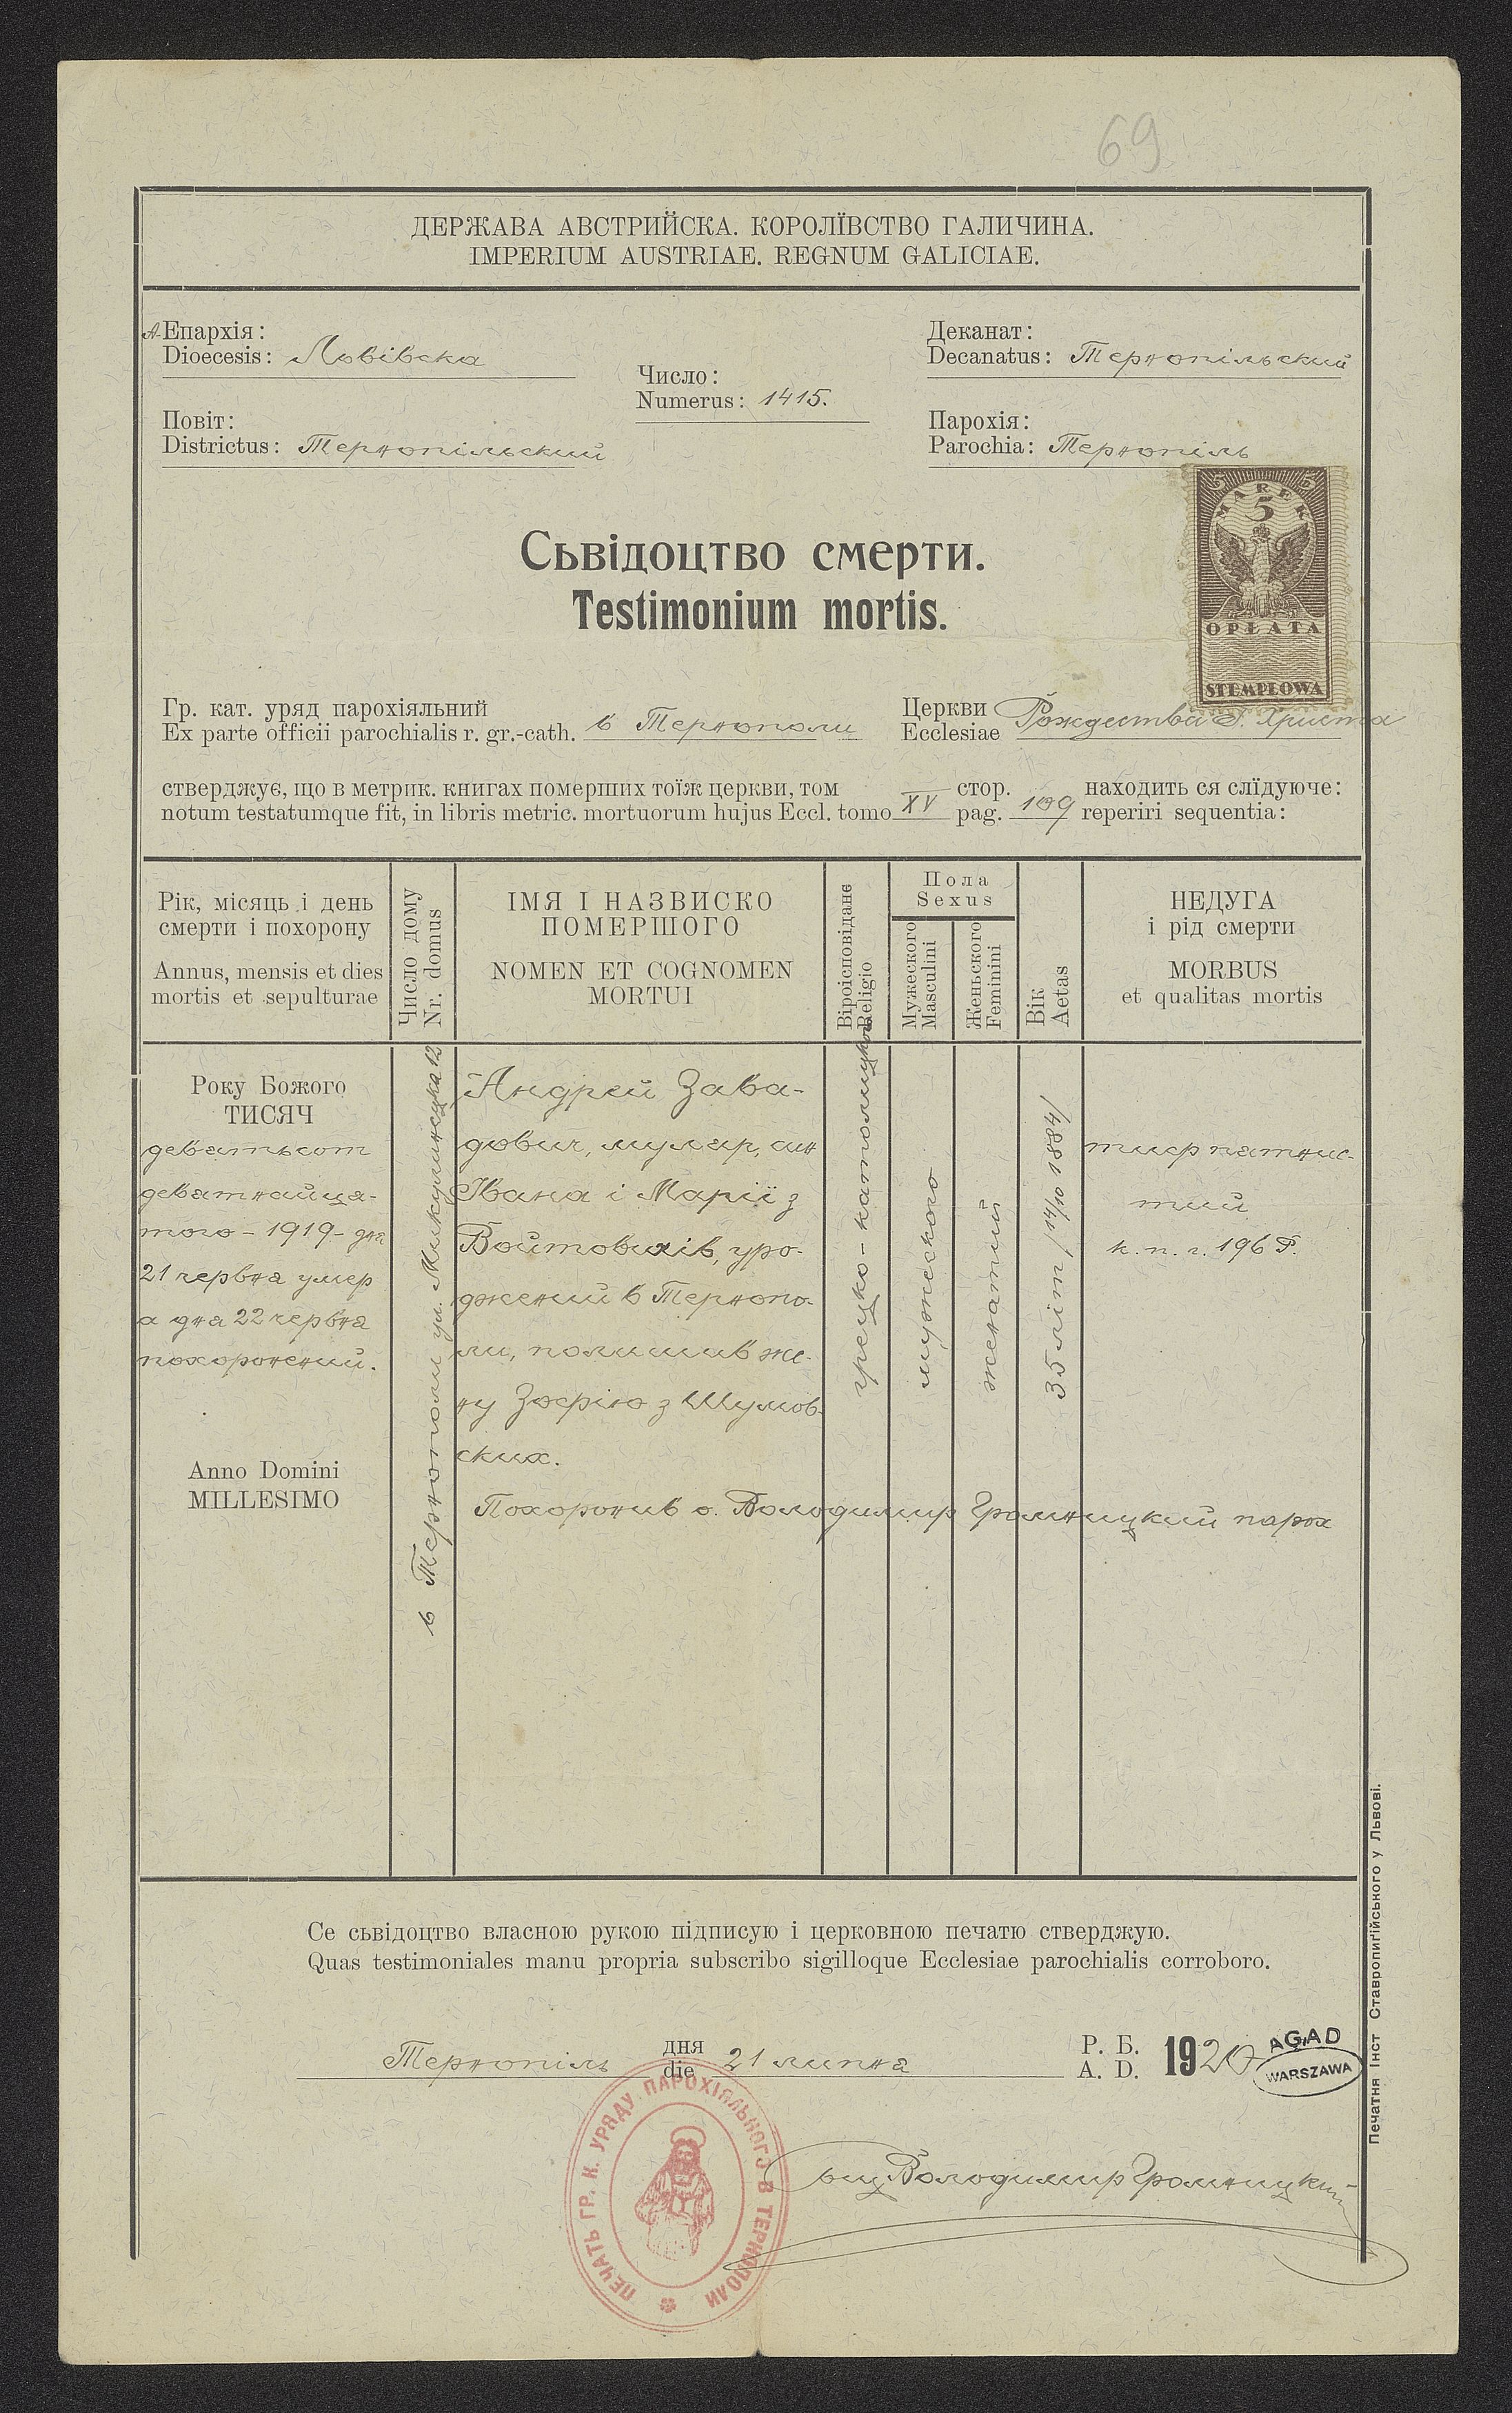 69
ДЕРЖАВА АВСТРИЙСКА. КОРОЛЇВСТВО ГАЛИЧИНА.
IMPERIUM AUSTRIAE. REGNUM GALICIAE.
А-Епархія:
Dioecesis: Львівска
Число:
Numerus: 1415.
Деканат:
Decanatus: Тернопільский
Повіт:
Districtus: Тернопільский
Парохія:
Parochia: Тернопіль
5 5
MAREK
5
OPŁATA
STEMPLOWA
Сьвідоцтво смерти.
Testimonium mortis.
Гр. кат. уряд парохіяльний
Ex parte officii parochialis r. gr.-cath. в Тернополи
Церкви
Ecclesiae Рождества І. Христа
стверджує, що в метрик. книгах померших тоїж церкви, том XV стор. 109 находить ся слїдуюче:
notum testatumque fit, in libris metric. mortuorum hujus Eccl. tomo pag. reperiri sequentia:
Рік, місяць і день
смерти і похорону
Annus, mensis et dies
mortis et sepulturae
Число дому
Nr. domus
ІМЯ І НАЗВИСКО
ПОМЕРШОГО
NOMEN ET COGNOMEN
MORTUI
Віроісповіданє
Religio
Пола
Sexus
Мужеского
Masculini
Женьского
Feminini
Вік
Aetas
НЕДУГА
і рід смерти
MORBUS
et qualitas mortis
Року Божого
ТИСЯЧ
девятьсот
девятнайця-
того - 1919 - дня
21 червня умер
а дня 22 червня
похоронений.
Anno Domini
MILLESIMO
в Тернополи ул. Микулинецка 12
Андрей Зава-
дович, муляр, син
Івана і Марії з
Войтовихів, уро-
джений в Тернопо-
ли, полишив же-
ну Зофію з Шумов-
ских.
Похоронив о. Володимир Громницкий парох
грецко-католицкого
мужеского
женатий
35 літ /14/10 1884/
тиф пятнис-
тий
к. п. г. 196 F.
Се сьвідоцтво власною рукою підписую і церковною печатю стверджую.
Quas testimoniales manu propria subscribo sigilloque Ecclesiae parochialis corroboro.
Тернопіль дня
die 21 липня Р. Б.
A. D. 1920
AGAD
WARSZAWA
ПЕЧАТЬ ГР. К. УРЯДУ ПАРОХІЯЛЬНОГО В ТЕРНОПОЛИ
Володимир Громницкий
Печатня Інст Ставропигійського у Львові.